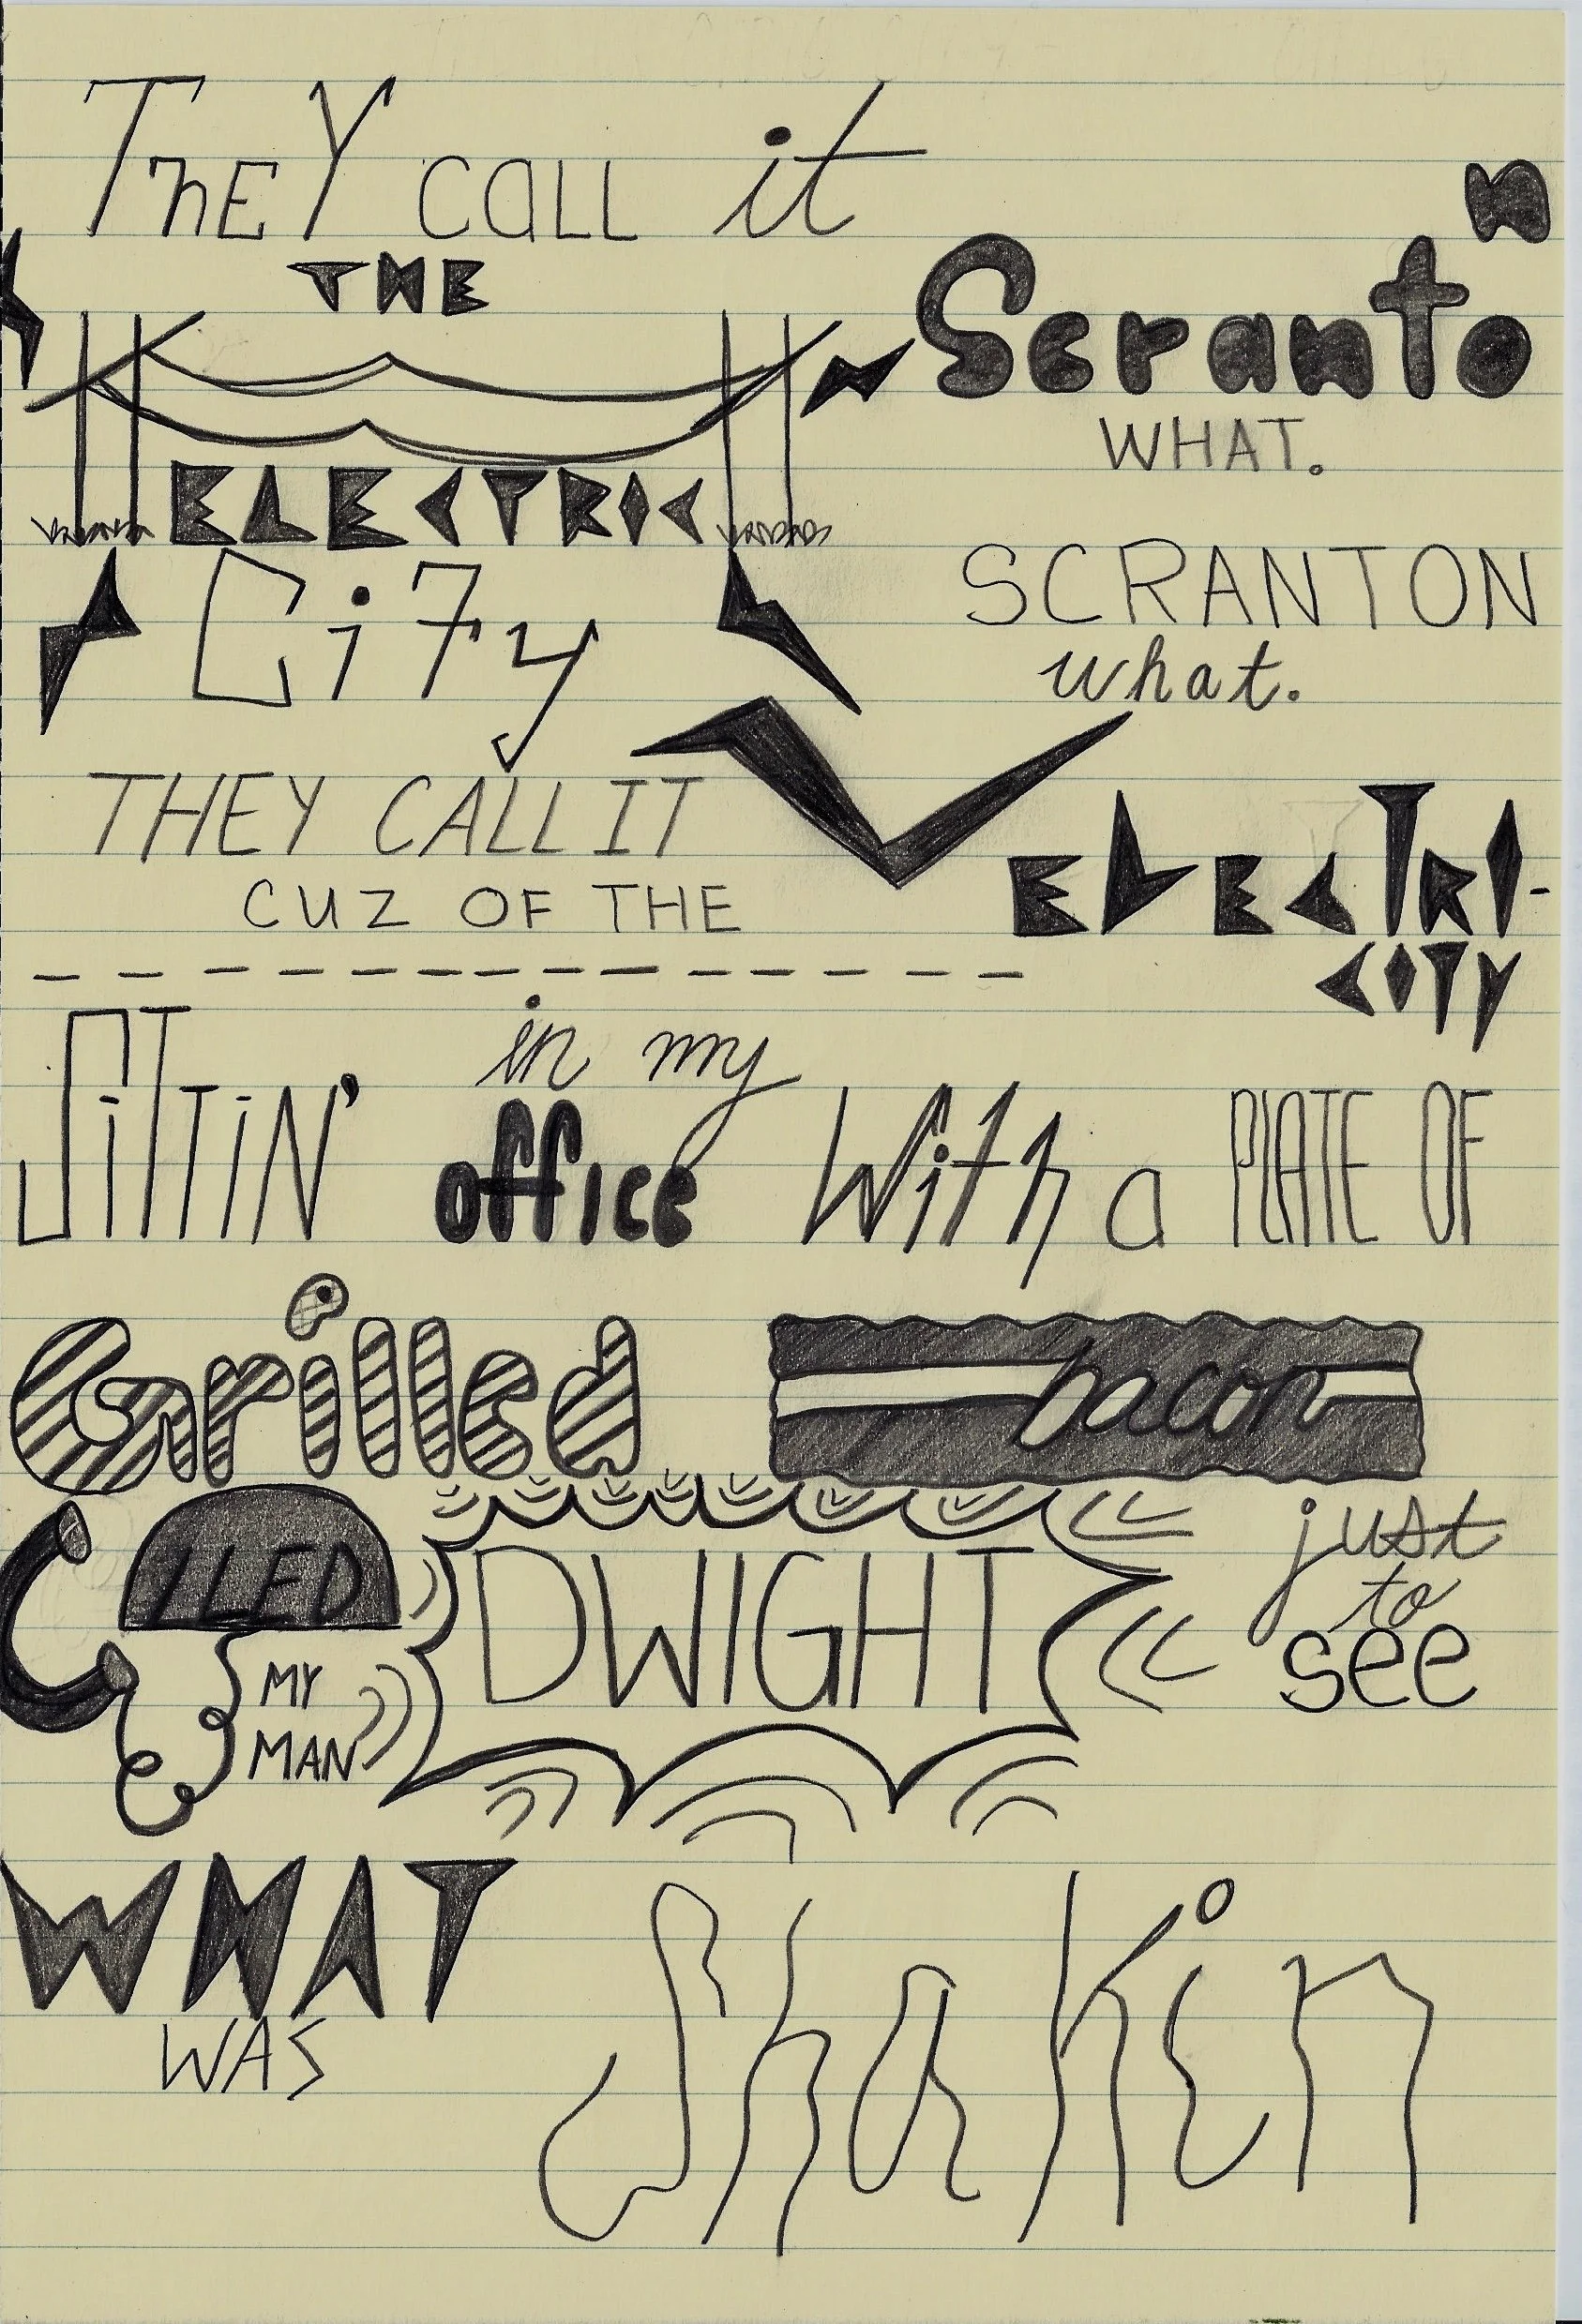 THEY CALL it
THE
ELECTRIC
City
Scranton
WHAT.
SCRANTON
what.
THEY CALL IT
CUZ OF THE
ELECTRI-
CITY
SITTIN' in my office With a PLATE OF
Grilled bacon
CALLED
MY
MAN
DWIGHT
just
to
see
WHAT
WAS
Shakin